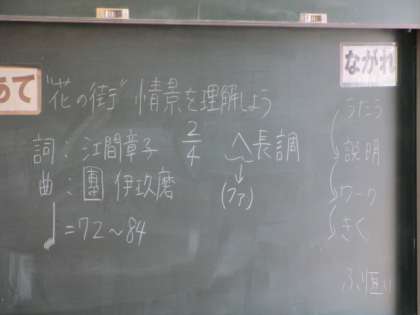 めあて
"花の街" 情景を理解しよう
詞：江間章子 2/4 ヘ長調
曲：團 伊玖磨 (ファ)
♩=72〜84
ながれ
うたう
説明
ワーク
きく
ふり回り